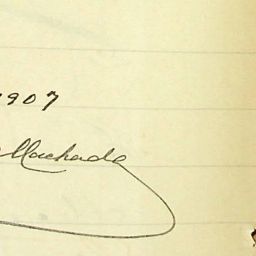 1907
Machado